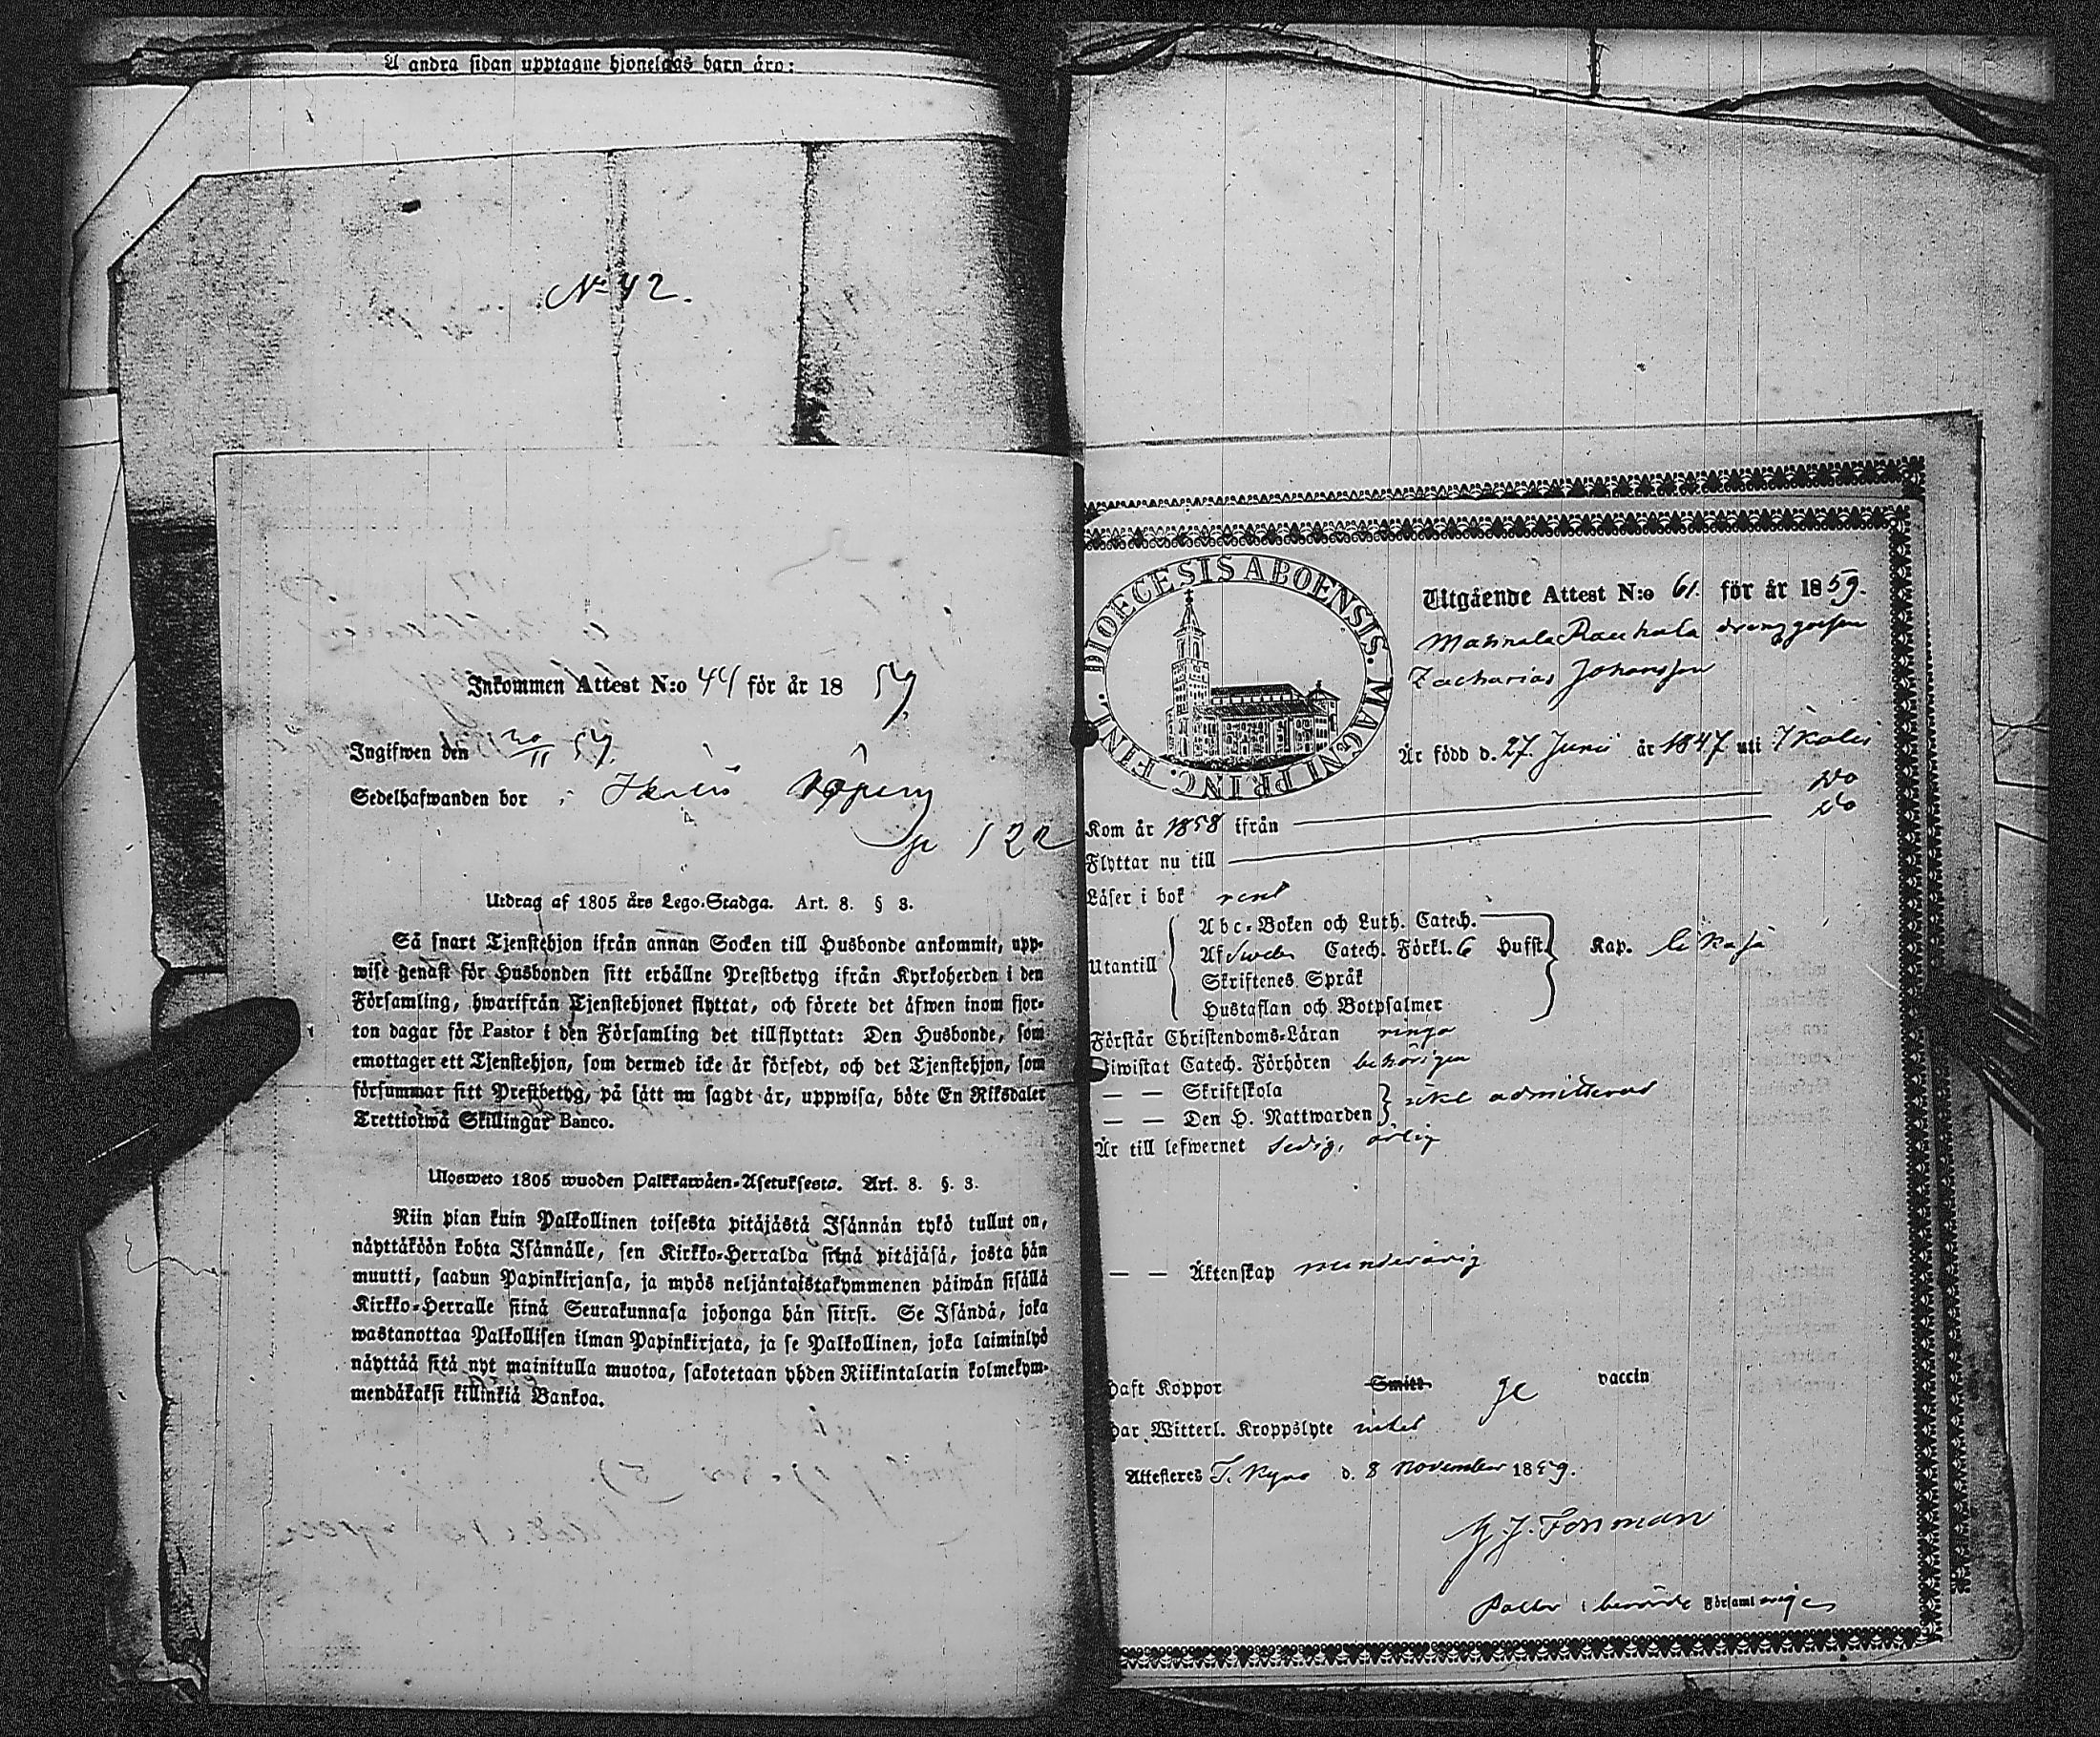 A andra sidan upptagne hjonelags barn äro:
No 42.
Inkommen Attest N:o 44 för år 18 59.
Ingifwen den 20/11 59.
Sedelhafwanden bor i Ikalis Köping
122
Utdrag af 1805 års Lego-Stadga. Art. 8. § 3.
Så snart Tjenstehjon ifrån annan Socken till Husbonde ankommit, upp-
wise genast för Husbonden sitt erhållne Prestbetyg ifrån Kyrkoherden i den
Församling, hwarifrån Tjenstehjonet flyttat, och förete det äfwen inom fjor-
ton dagar för Pastor i den Församling det tillflyttat: Den Husbonde, som
emottager ett Tjenstehjon, som dermed icke är försedt, och det Tjenstehjon, som
försummar sitt Prestbetyg, på sätt nu sagdt är, uppwisa, böte En Riksdaler
Trettiotwå Skillingar Banco.
Ulosweto 1805 wuoden Palkkawäen-Asetuksesta. Art. 8. §. 3.
Niin pian kuin Palkollinen toisesta pitäjästä Isännän tykö tullut on,
näyttäköön kohta Isännälle, sen Kirkko-Herralda siinä pitäjäsä, josta hän
muutti, saadun Papinkirjansa, ja myös neljäntoistakymmenen päiwän sisällä
Kirkko-Herralle siinä Seurakunnasa johonga hän siirsi. Se Isändä, joka
wastanottaa Palkollisen ilman Papinkirjata, ja se Palkollinen, joka laiminlyö
näyttää sitä nyt mainitulla muotoa, sakotetaan yhden Riikintalarin kolmekym-
mendäkaksi killinkiä Bankoa.
DIOECESIS ABOENSIS. MAGNI PRINC. FINL.
Utgående Attest N:o 61. för år 1859.
Zacharias Johansson
Är född d. 27. Junii år 1847 uti Ikalis
Kom år 1858 ifrån Do
Flyttar nu till Do
Läser i bok rent
Utantill
Abc-Boken och Luth. Catech.
Af Catech. Förkl. 6 Hufst. Kap.
Skriftenes Språk
Hustaflan och Botpsalmer
Förstår Christendoms-Läran ringa
Biwistat Catech. Förhören behörigen
— — Skriftskola
— — Den H. Nattwarden icke admitterad
Är till lefwernet sedig, ärlig
— — Äktenskap minderårig
Haft Koppor Smitt. vaccin
Har Witterl. Kroppslyte intet
Attesteres T. Kyro d. 8 November 1859.
Forsman
Pastor i berörde Församlingen